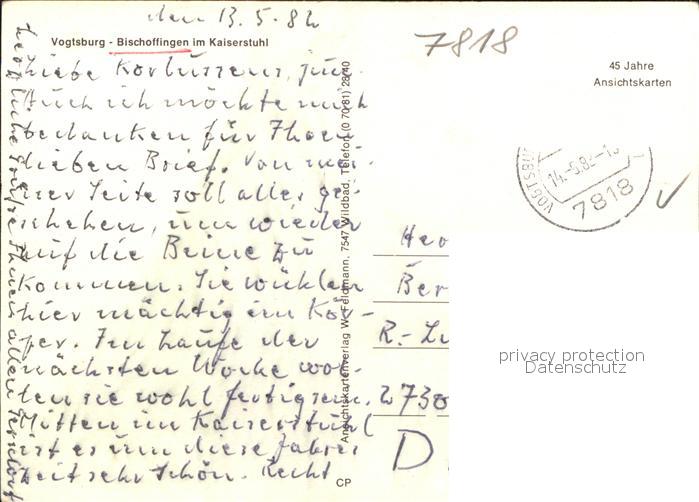 den 13.5.82
Vogtsburg - Bischoffingen im Kaiserstuhl
Liebe
Auch ich möchte mich
bedanken für Ihren
lieben Brief. Von mei-
ner Seite soll alles ge-
schehen, um wieder
auf die Beine zu
kommen. Sie wühlen
hier mächtig im Kör-
per. Im Laufe der
nächsten Woche wer-
den sie wohl fertig sein.
Mitten im Kaiserstuhl
ist es um diese Jahres
zeit sehr schön. Recht
herzliche Grüße Ihnen allen
Ansichtskartenverlag W. Feldmann, 7547 Wildbad, Telefon (0 70 81) 28 40
CP
7818
45 Jahre
Ansichtskarten
VOGTSBU
7818
Her
Ber
R.-Lu
W730
D
privacy protection
Datenschutz